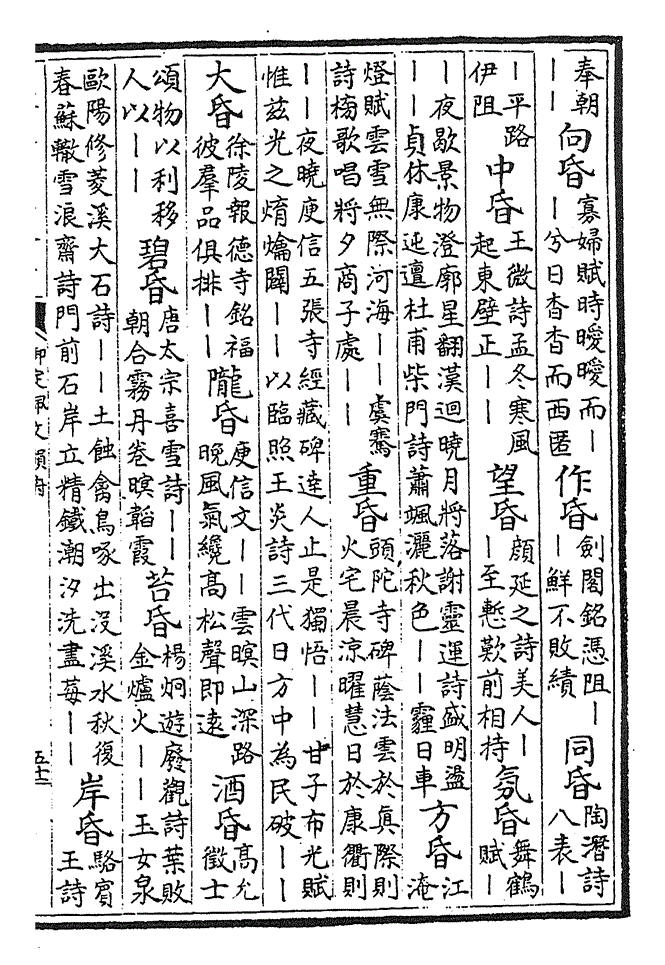 奉朝——向昏寡婦賦時曖曖而——兮日杳杳而西匿作昏劍閣銘憑阻——鮮不敗績同昏陶潛詩八表—
—平路伊阻中昏王微詩孟冬寒風起東壁正——望昏顔延之詩美人——至慙歎前相持氛昏舞鶴賦—
—夜歇景物澄廓星翻漢迴曉月將落謝靈運詩盛明盪——貞休康迍邅杜甫柴門詩蕭颯灑秋色——霾日車方昏江淹
燈賦雲雪無際河海——虞騫詩榜歌唱將夕商子處——重昏頭陀寺碑蔭法雲於眞際則火宅晨涼曜慧日於康衢則
——夜曉庾信五張寺經藏碑達人止是獨悟——甘子布光賦惟茲光之焴爚闢——以臨照王炎詩三代日方中為民破——
大昏徐陵報德寺銘福彼羣品俱排——隴昏庾信文——雲暝山深路晚風氣纔高松聲即遠酒昏高允徵士
頌物以利移人以——碧昏唐太宗喜雪詩——朝合霧丹卷暝韜霞苔昏楊炯遊廢觀詩葉敗金爐火——玉女泉
歐陽修菱溪大石詩——土蝕禽鳥啄出没溪水秋復春蘇轍雪浪齋詩門前石岸立精鐵潮汐洗盡莓——岸昏駱賓王詩